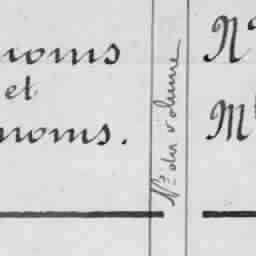 noms
et
noms.
N° du volume
N°
M